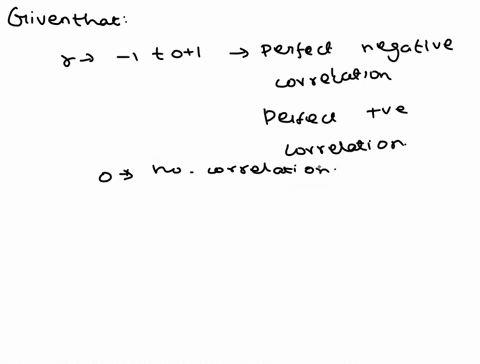 Giventhat:
r→ -1 to +1 → perfect negative
correlation
perfect +ve
correlation.
0→ no. correlation.